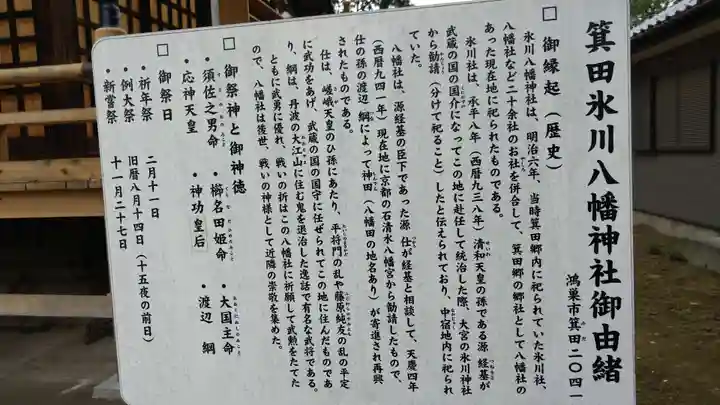 箕田氷川八幡神社御由緒
鴻巣市箕田二〇四一
□ 御縁起(歴史)
氷川八幡神社は、明治六年、当時箕田郷内に祀られていた氷川社、
八幡社など二十余社のお社を併合して、箕田郷の郷社として八幡社の
あった現在地に祀られたものである。
氷川社は、承平八年(西暦九三八年)清和天皇の孫である源 経基が
武蔵の国の国介になってこの地に赴任して統治した際、大宮の氷川神社
から勧請(分けて祀ること)したと伝えられており、中宿地内に祀られ
ていた。
八幡社は、源経基の臣下であった源 仕が経基と相談して、天慶四年
(西暦九四一年)現在地に京都の石清水八幡宮から勧請したもので、
仕の孫の渡辺 綱によって神田(八幡田の地名あり)が寄進され再興
されたものである。
仕は、嵯峨天皇のひ孫にあたり、平将門の乱や藤原純友の乱の平定
に武功をあげ、武蔵の国の国守に任ぜられてこの地に住んだものであ
り、綱は、丹波の大江山に住む鬼を退治した逸話で有名な武将である。
ともに武勇に優れ、戦いの折はこの八幡社に祈願して武勲をたてた
ので、八幡社は後世、戦いの神様として近隣の崇敬を集めた。
□ 御祭神と御神徳
・須佐之男命 ・櫛名田姫命 ・大国主命
・応神天皇 ・神功皇后 ・渡辺 綱
□ 御祭日
・祈年祭 二月十一日
・例大祭 旧暦八月十四日(十五夜の前日)
・新嘗祭 十一月二十七日